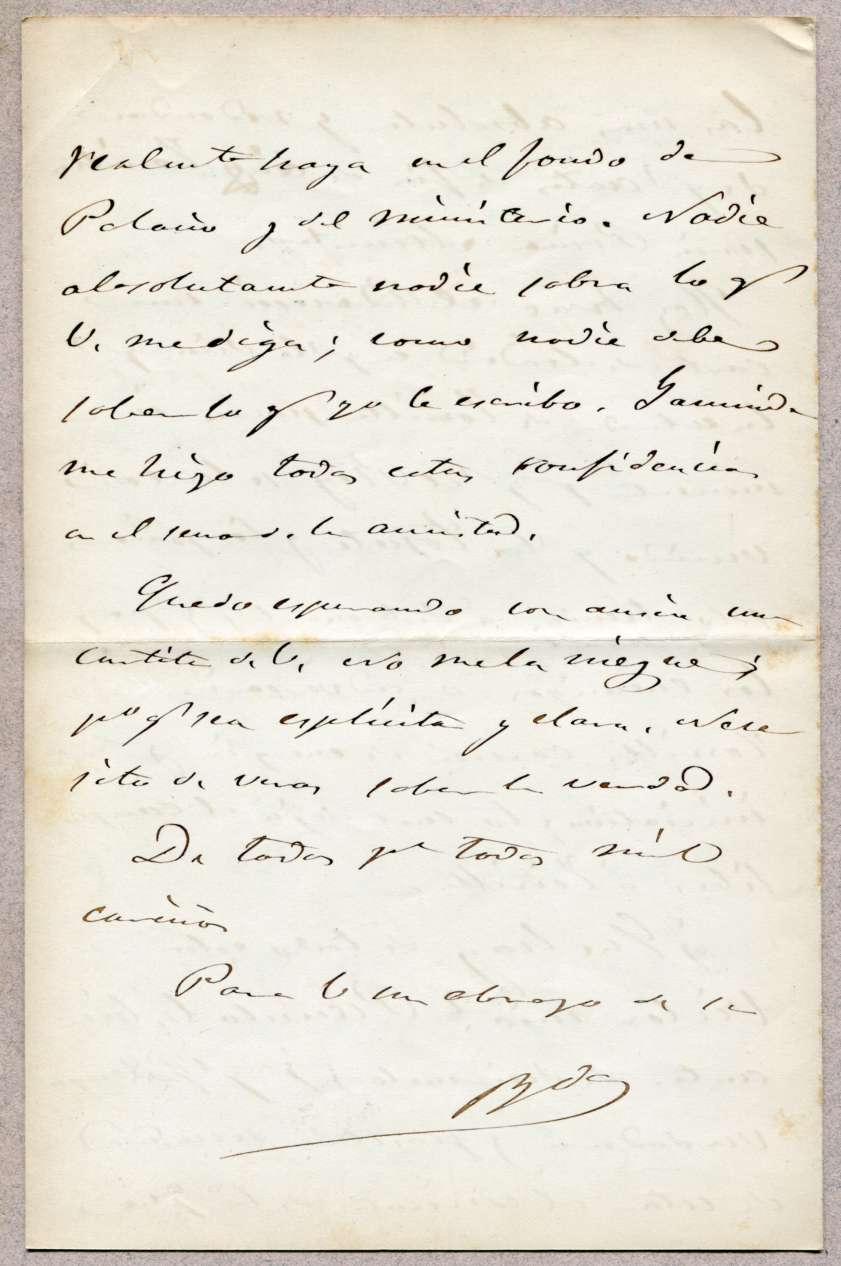 realmente haya en el fondo de
Palacio y del ministerio. Nadie
absolutamente nadie sabra lo q.e
V. me diga; como nadie debe
saber lo q.e yo le escribo. Gaminde
me hizo todas estas confidencias
en el seno de la amistad.
Quedo esperando con ansia una
cartita de V. No me la niegue;
p.o q.e sea esplicita y clara. Nece
sito de veras saber la verdad.
De todos p.a todos mil
cariños
Para V un abrazo de su